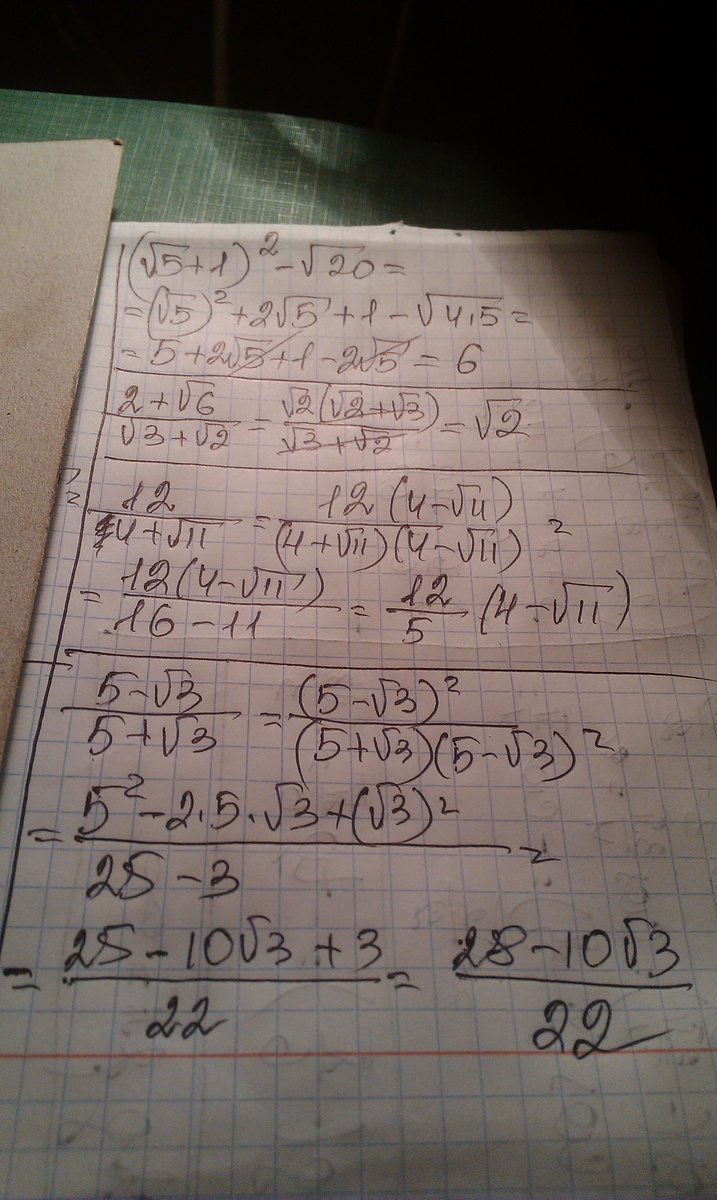 (√5+1)² - √20 =
= (√5)² + 2√5 + 1 - √4.5 =
= 5 + 2√5 + 1 - 2√5 = 6
(2+√6)/(√3+√2) = (√2(√2+√3))/(√3+√2) = √2
12/(4+√11) = (12(4-√11))/((4+√11)(4-√11)) =
= (12(4-√11))/(16-11) = 12/5 (4-√11)
(5-√3)/(5+√3) = (5-√3)²/((5+√3)(5-√3)) =
= (5² - 2.5.√3 + (√3)²)/(25-3) =
= (25 - 10√3 + 3)/22 = (28 - 10√3)/22